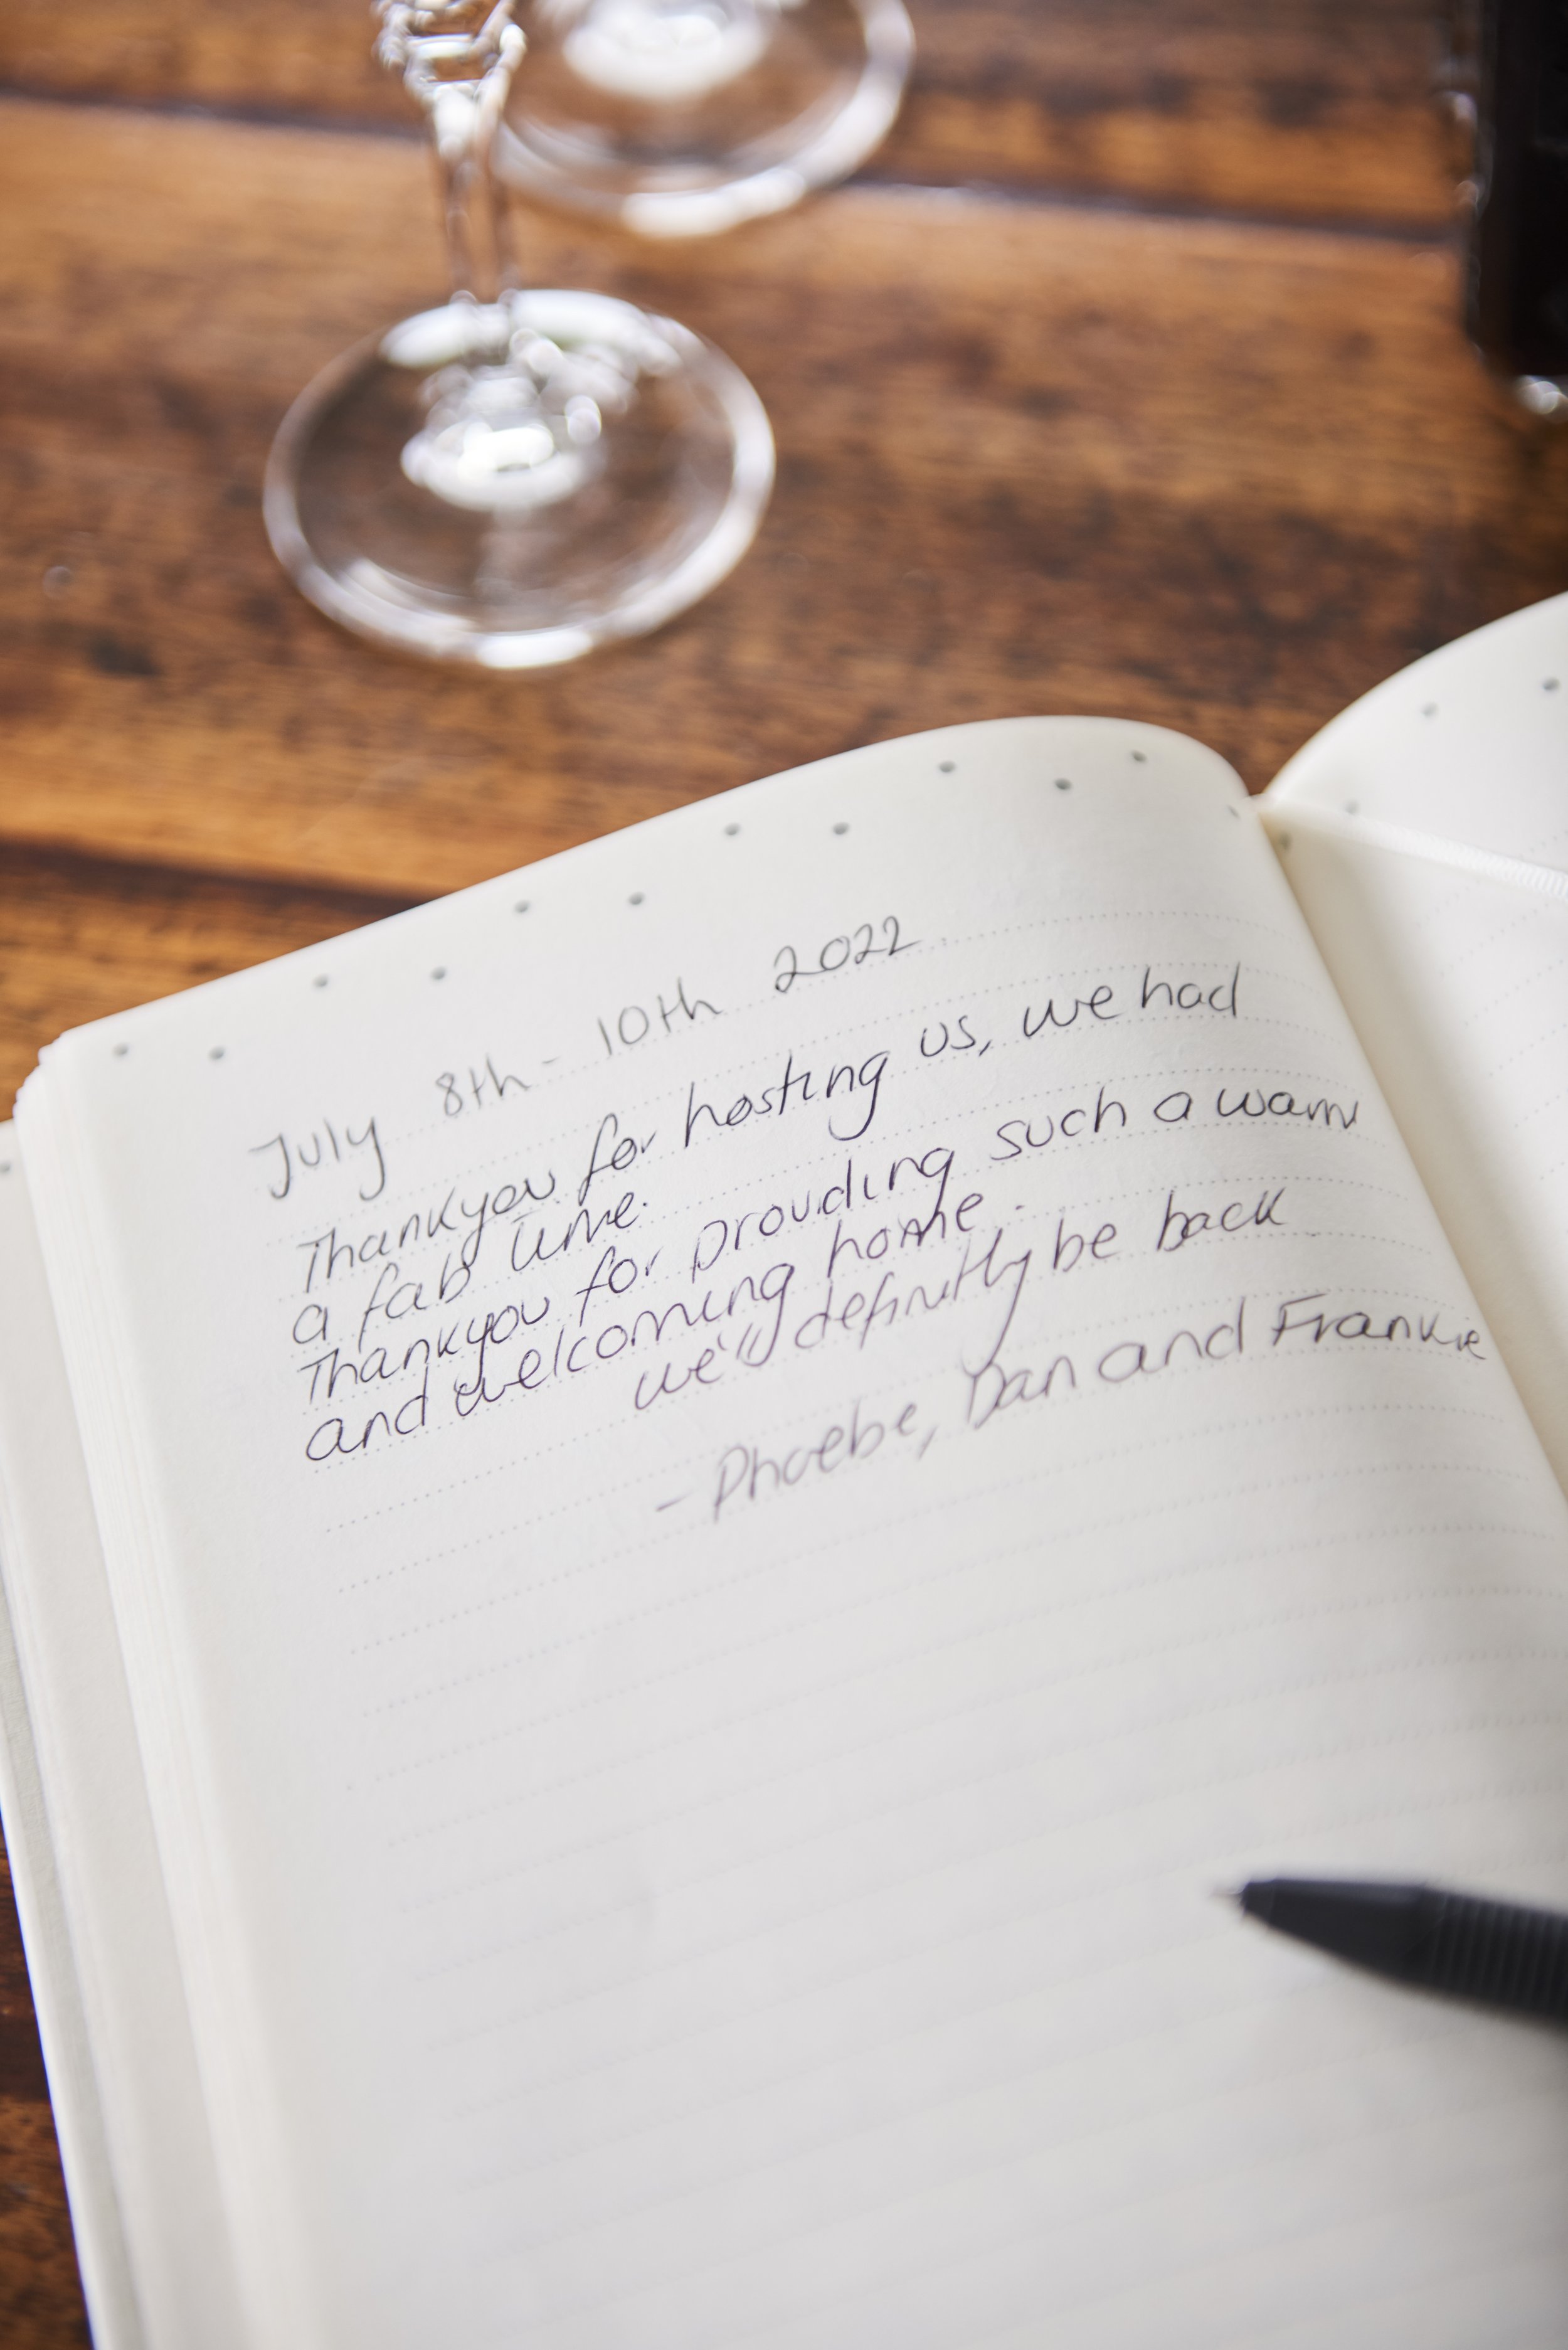 July 8th - 10th 2022
Thankyou for hosting us, we had
a fab time.
Thankyou for providing such a warm
and welcoming home.
we'll definitly be back
- Phoebe, Dan and Frankie